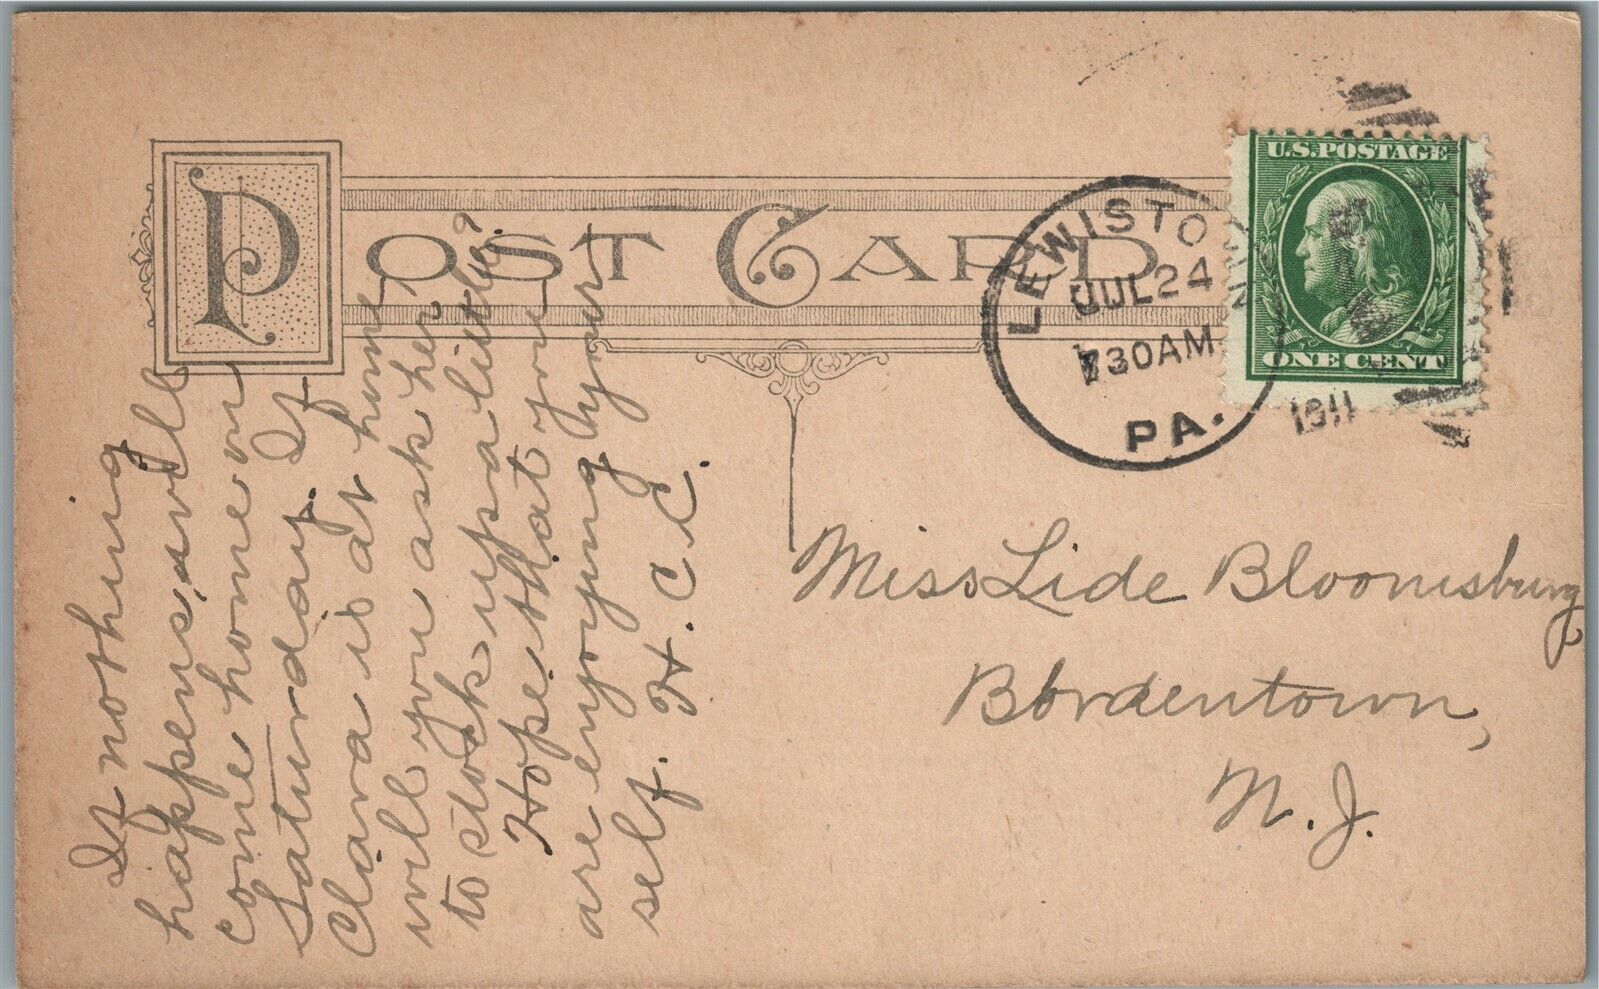 POST CARD
LEWISTOWN
JUL 24
730 AM
1911
PA.
U.S. POSTAGE
ONE CENT
If nothing
happens, will
come home on
Saturday. If
Clara is at home
will you ask her
to stock up a little?
Hope that you
are enjoying your
self. H. C. C.
Miss Lide Bloomsburg
Bordentown,
N. J.